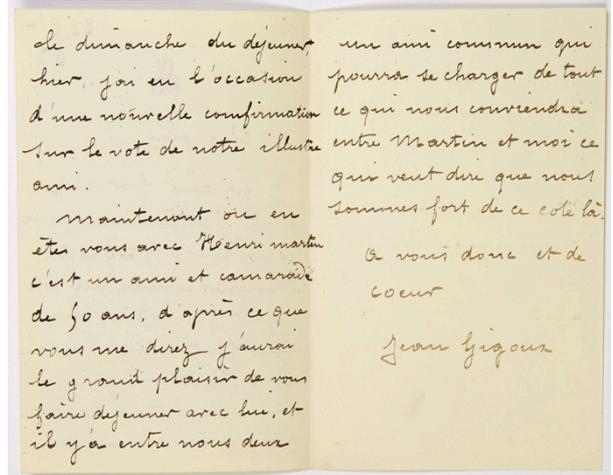 de dimanche du déjeuner,
hier, j'ai eu l'occasion
d'une nouvelle comfirmation
sur le vote de notre illustre
ami.
Maintenant ou en
êtes vous avec Henri martin
c'est un ami et camarade
de 50 ans, d'après ce que
vous me direz j'aurai
le grand plaisir de vous
faire déjeuner avec lui, et
il y'a entre nous deux
un ami commun qui
pourra se charger de tout
ce qui nous conviendra
entre Martin et moi ce
qui veut dire que nous
sommes fort de ce coté là.
A vous donc et de
coeur
Jean Gigoux